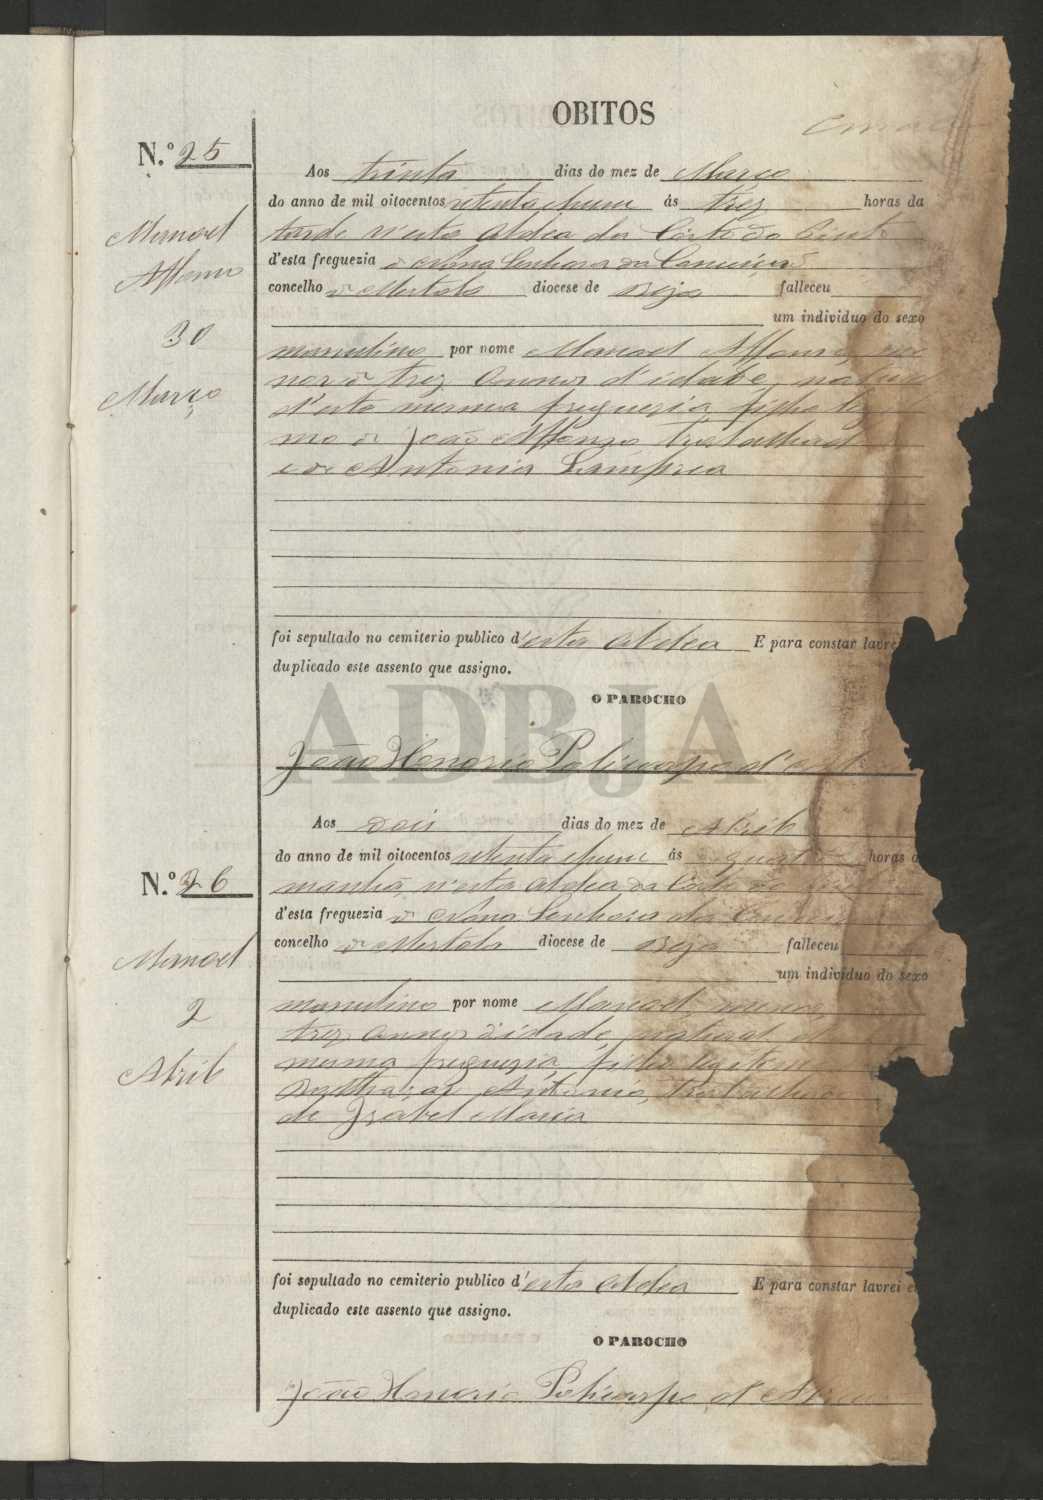 OBITOS
N.º 25
Manoel
Affonso
30
Março
Aos trinta dias do mez de Março
do anno de mil oitocentos setenta e hum ás trez horas da
tarde n'esta Aldea da Côrte do Pinto
d'esta freguezia de Nossa Senhora da Conceição
concelho de Mertola diocese de Beja falleceu
um individuo do sexo
masculino por nome Manoel Affonso, me
nor de trez annos d'idade, natural
d'esta mesma freguezia, filho legi
mo de João Affonso Trabalhador
e de Antonia Lampreia
foi sepultado no cemiterio publico d'esta Aldea E para constar lavrei
duplicado este assento que assigno.
O PAROCHO
João Honorio Policarpo d'
ADBJA
N.º 26
Manoel
2
Abril
Aos dois dias do mez de Abril
do anno de mil oitocentos setenta e hum ás quatro horas da
manhã, n'esta Aldea da Côrte do
d'esta freguezia de Nossa Senhora da
concelho de Mertola diocese de Beja falleceu
um individuo do sexo
masculino por nome Manoel, menor
trez annos d'idade, natural d
mesma freguezia, filho legitim
Balthazar Antonio, Trabalhador
de Izabel Maria
foi sepultado no cemiterio publico d'esta Aldea E para constar lavrei e
duplicado este assento que assigno.
O PAROCHO
João Honorio Policarpo d'